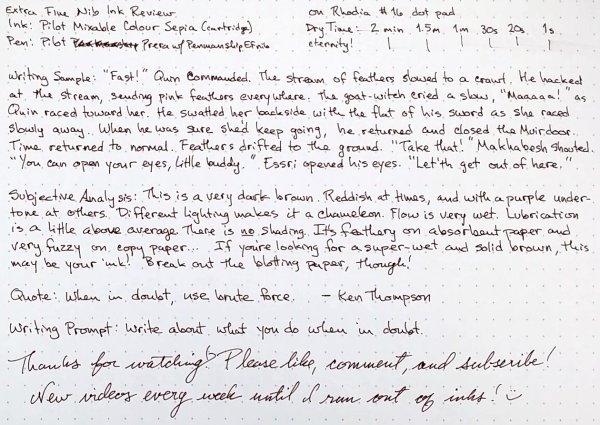 Extra Fine Nib Ink Review
on Rhodia #16 dot pad
Ink: Pilot Mixable Colour Sepia (cartridge)
Dry Time: 2 min 1.5m 1m 30s 20s 1s
Pen: Pilot Prera w/ Penmanship EF nib
eternity!
Writing Sample: "Fast!" Quin commanded. The stream of feathers slowed to a crawl. He hacked
at the stream, sending pink feathers everywhere. The goat-witch cried a slow, "Maaaaa!" as
Quin raced toward her. He swatted her backside with the flat of his sword as she raced
slowly away. When he was sure she'd keep going, he returned and closed the Muirdoor.
Time returned to normal. Feathers drifted to the ground. "Take that!" Makhabesh shouted.
"You can open your eyes, little buddy." Essri opened his eyes. "Let'th get out of here."
Subjective Analysis: This is a very dark brown. Reddish at times, and with a purple under-
tone at others. Different lighting makes it a chameleon. Flow is very wet. Lubrication
is a little above average. There is no shading. It's feathery on absorbent paper and
very fuzzy on copy paper... If you're looking for a super-wet and solid brown, this
may be your ink! Break out the blotting paper, though!
Quote: When in doubt, use brute force. - Ken Thompson
Writing Prompt: Write about what you do when in doubt.
Thanks for watching! Please like, comment, and subscribe!
New videos every week until I run out of inks! :)